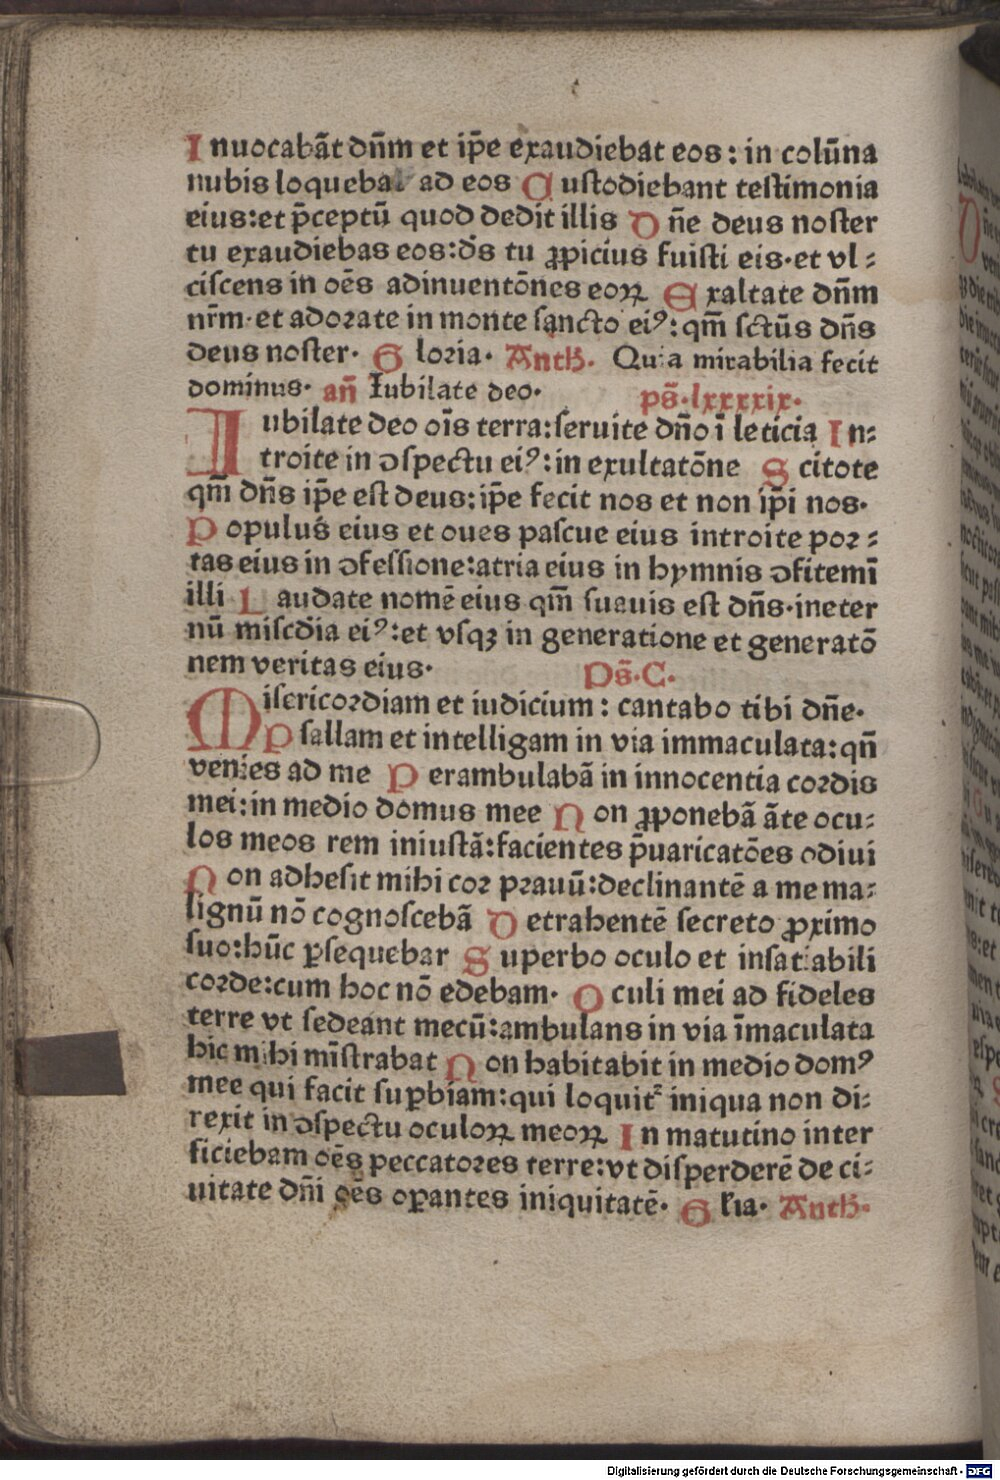 Inuocabãt dñm et ip̃e exaudiebat eos: in colũna
nubis loquebat ad eos Custodiebant testimonia
eius: et p̃ceptũ quod dedit illis Dñe deus noster
tu exaudiebas eos: ds̃ tu ꝓpicius fuisti eis· et vl⸗
ciscens in oẽs adinuentõnes eoꝝ Exaltate dñm
nr̃m· et adorate in monte sancto eiꝰ: qm̃ sctũs dñs
deus noster· Gloria· Anth̃· Quia mirabilia fecit
dominus· añ Iubilate deo· ps̃·lxxxxix·
Iubilate deo oĩs terra: seruite dño ĩ leticia In⸗
troite in ↄspectu eiꝰ: in exultatõne Scitote
qm̃ dñs ip̃e est deus: ip̃e fecit nos et non ip̃i nos·
Populus eius et oues pascue eius introite por⸗
tas eius in ↄfessione: atria eius in hymnis ↄfitemĩ
illi Laudate nomẽ eius qm̃ suauis est dñs· in eter
nũ misc̃dia eiꝰ: et vsqꝫ in generatione et generatõ
nem veritas eius· Ps̃·C·
Misericordiam et iudicium: cantabo tibi dñe·
Psallam et intelligam in via immaculata: qñ
venies ad me Perambulabã in innocentia cordis
mei: in medio domus mee Non ꝓponebã ãte ocu⸗
los meos rem iniustã: facientes p̃uaricatões odiui
Non adhesit mihi cor prauũ: declinantẽ a me ma⸗
lignũ nõ cognoscebã Detrahentẽ secreto ꝓximo
suo: hũc ꝑsequebar Superbo oculo et insatiabili
corde: cum hoc nõ edebam· Oculi mei ad fideles
terre vt sedeant mecũ: ambulans in via ĩmaculata
hic mihi mĩstrabat Non habitabit in medio domꝰ
mee qui facit suꝑbiam: qui loquit᷑ iniqua non di⸗
rexit in ↄspectu oculoꝝ meoꝝ In matutino inter
ficiebam oẽs peccatores terre: vt disperderẽ de ci⸗
uitate dñi oẽs oꝑantes iniquitatẽ· Gl̃ia· Anth̃·
Digitalisierung gefördert durch die Deutsche Forschungsgemeinschaft - DFG